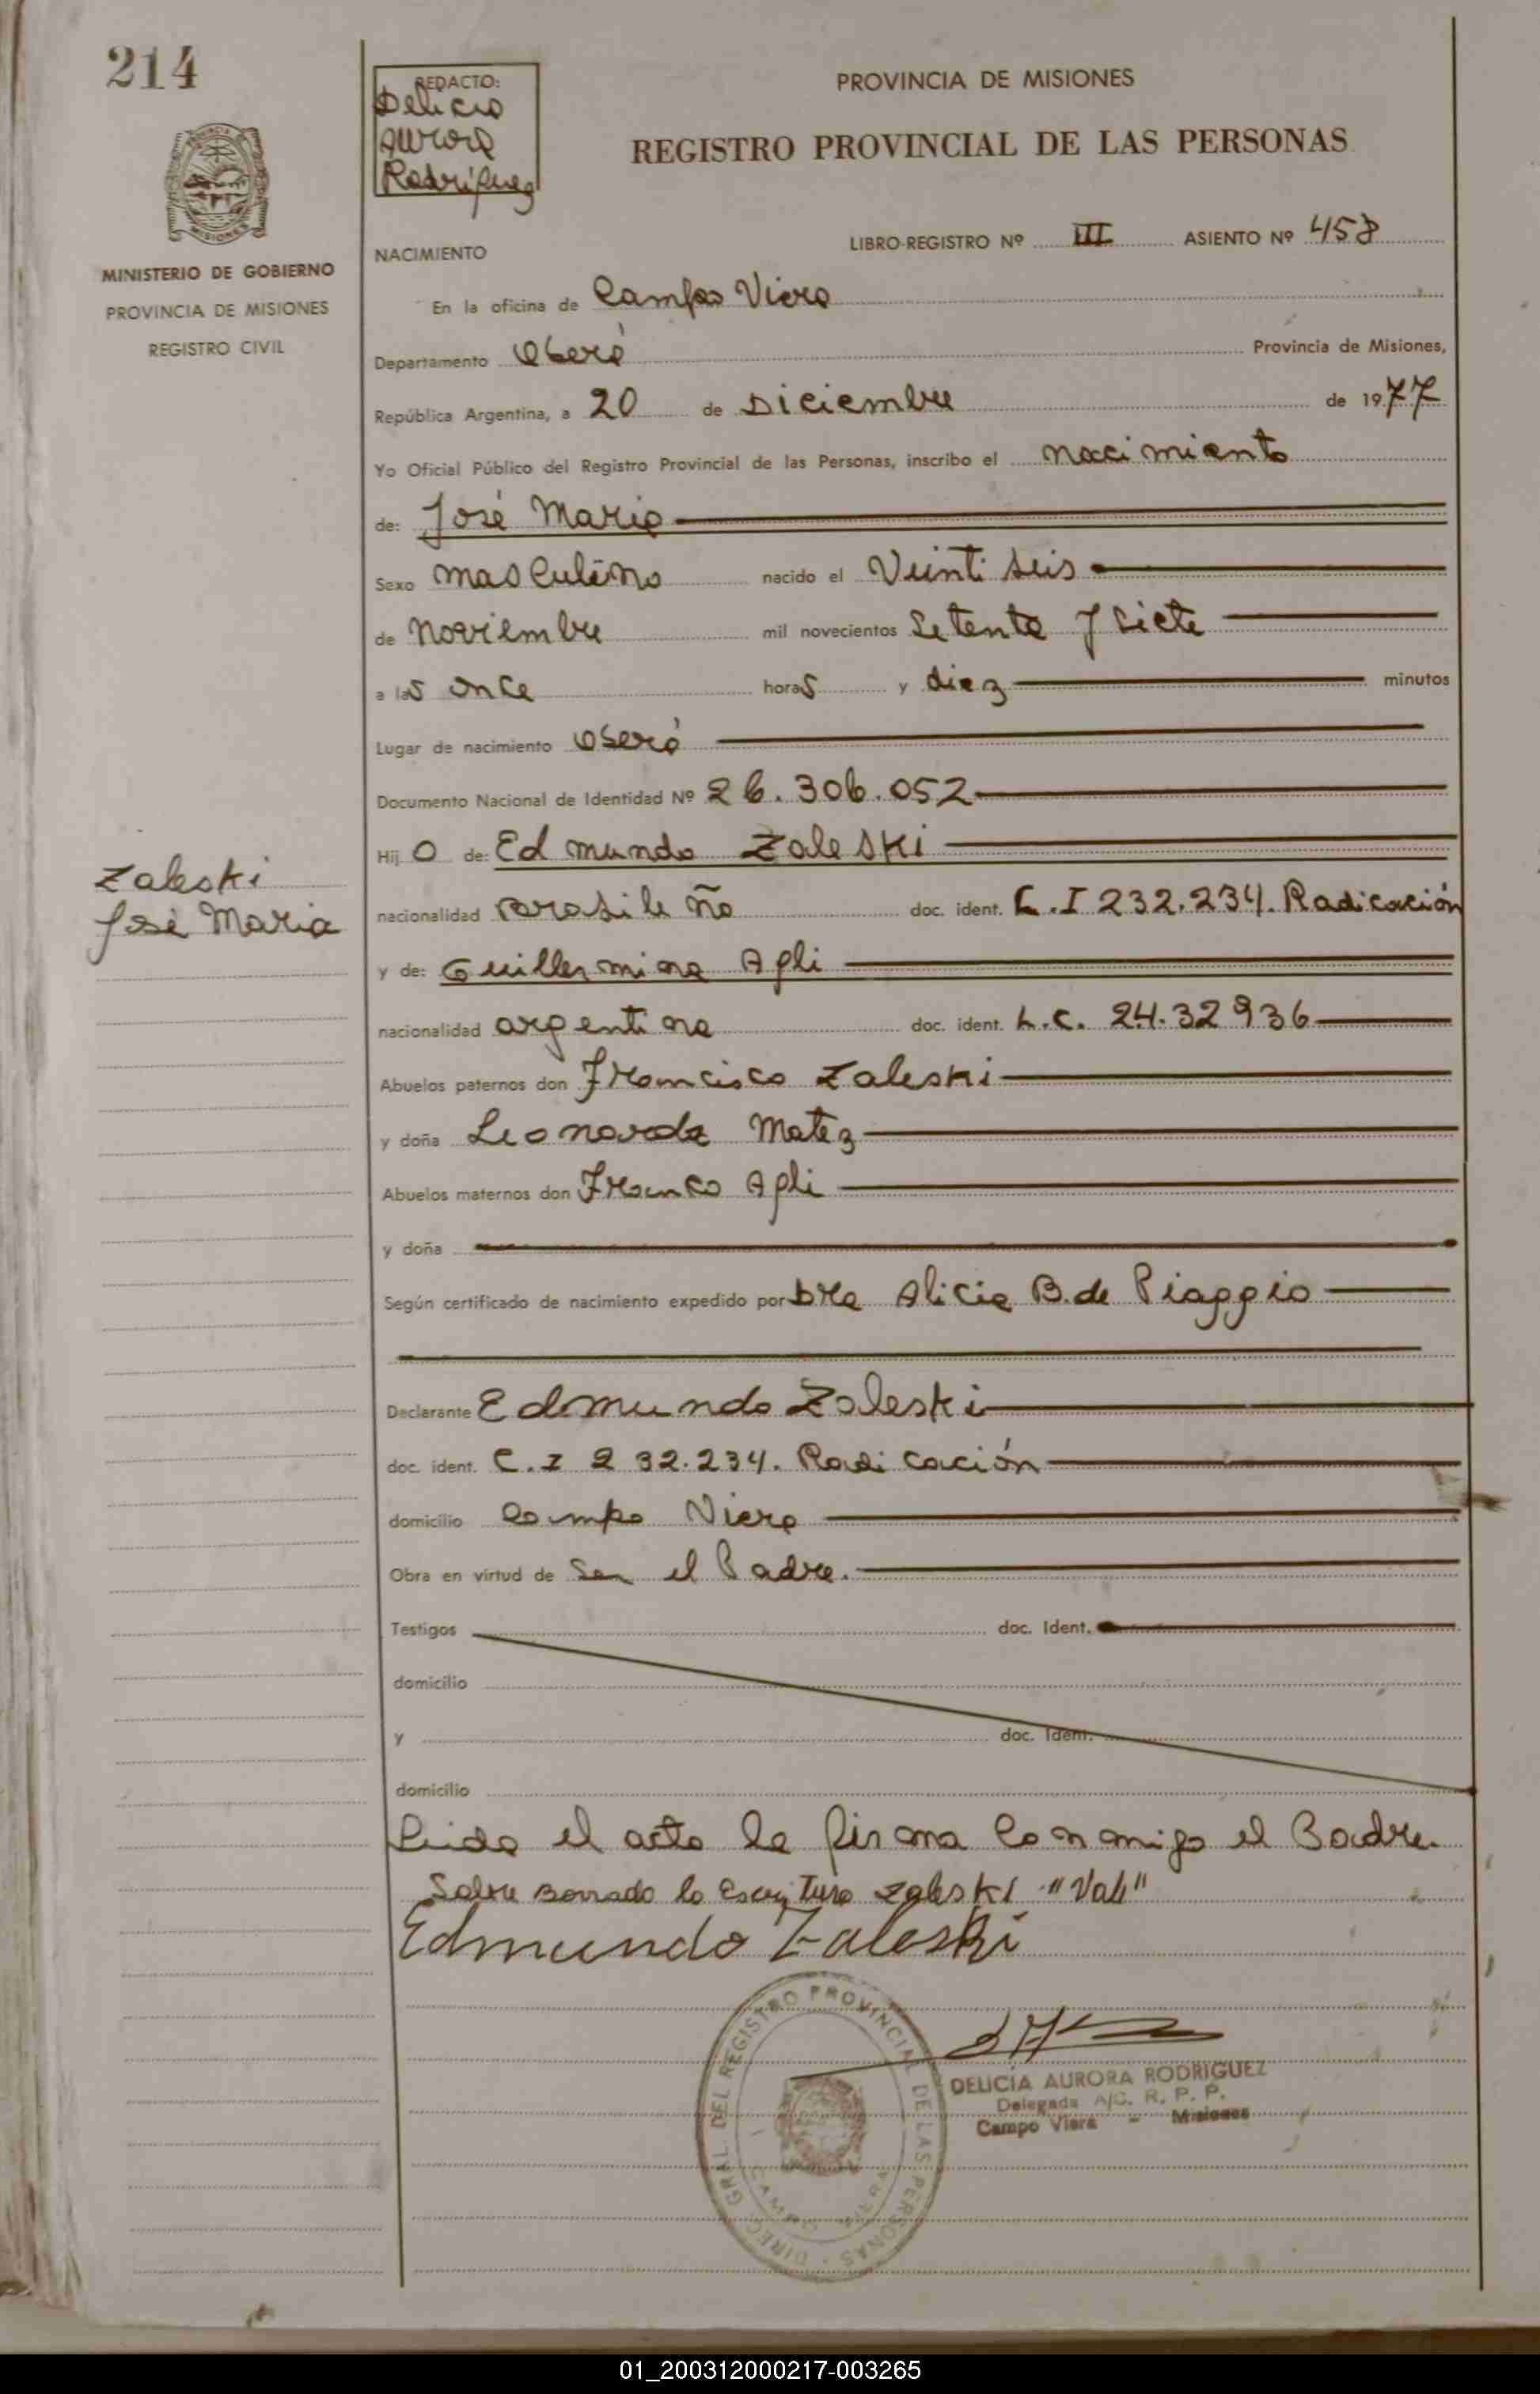 214
REDACTO:
Delicia
Aurora
Rodríguez
PROVINCIA DE MISIONES
REGISTRO PROVINCIAL DE LAS PERSONAS
MINISTERIO DE GOBIERNO
PROVINCIA DE MISIONES
REGISTRO CIVIL
LIBRO-REGISTRO Nº III ASIENTO Nº 458
NACIMIENTO
En la oficina de Campo Viera
Departamento Oberá Provincia de Misiones,
República Argentina, a 20 de Diciembre de 1977
Yo Oficial Público del Registro Provincial de las Personas, inscribo el nacimiento
de: José Maria
Sexo masculino nacido el Veinti seis
de noviembre mil novecientos Setenta y siete
a las once horas y diez minutos
Lugar de nacimiento Oberá
Documento Nacional de Identidad Nº 26.306.052
Hijo de: Edmundo Zaleski
Zaleski
José Maria
nacionalidad brasileño doc. ident. C.I 232.234. Radicación
y de: Guillermina Agli
nacionalidad argentina doc. ident. L.C. 24.32936
Abuelos paternos don Francisco Zaleski
y doña Leonarda Matez
Abuelos maternos don Franco Agli
y doña
Según certificado de nacimiento expedido por Dra Alicia B. de Piaggio
Declarante Edmundo Zaleski
doc. ident. C.I 232.234. Radicación
domicilio Campo Viera
Obra en virtud de Ser el Padre.
Testigos doc. Ident.
domicilio
y doc. Ident.
domicilio
Leida el acta la firma conmigo el Padre.
Sobre Borrado lo Escritura Zaleski "Vale"
Edmundo Zaleski
DIREC. GRAL. DEL REGISTRO PROVINCIAL DE LAS PERSONAS
CAMPO VIERA
DELICIA AURORA RODRIGUEZ
Delegada A/C. R. P. P.
Campo Viera - Misiones
01_200312000217-003265